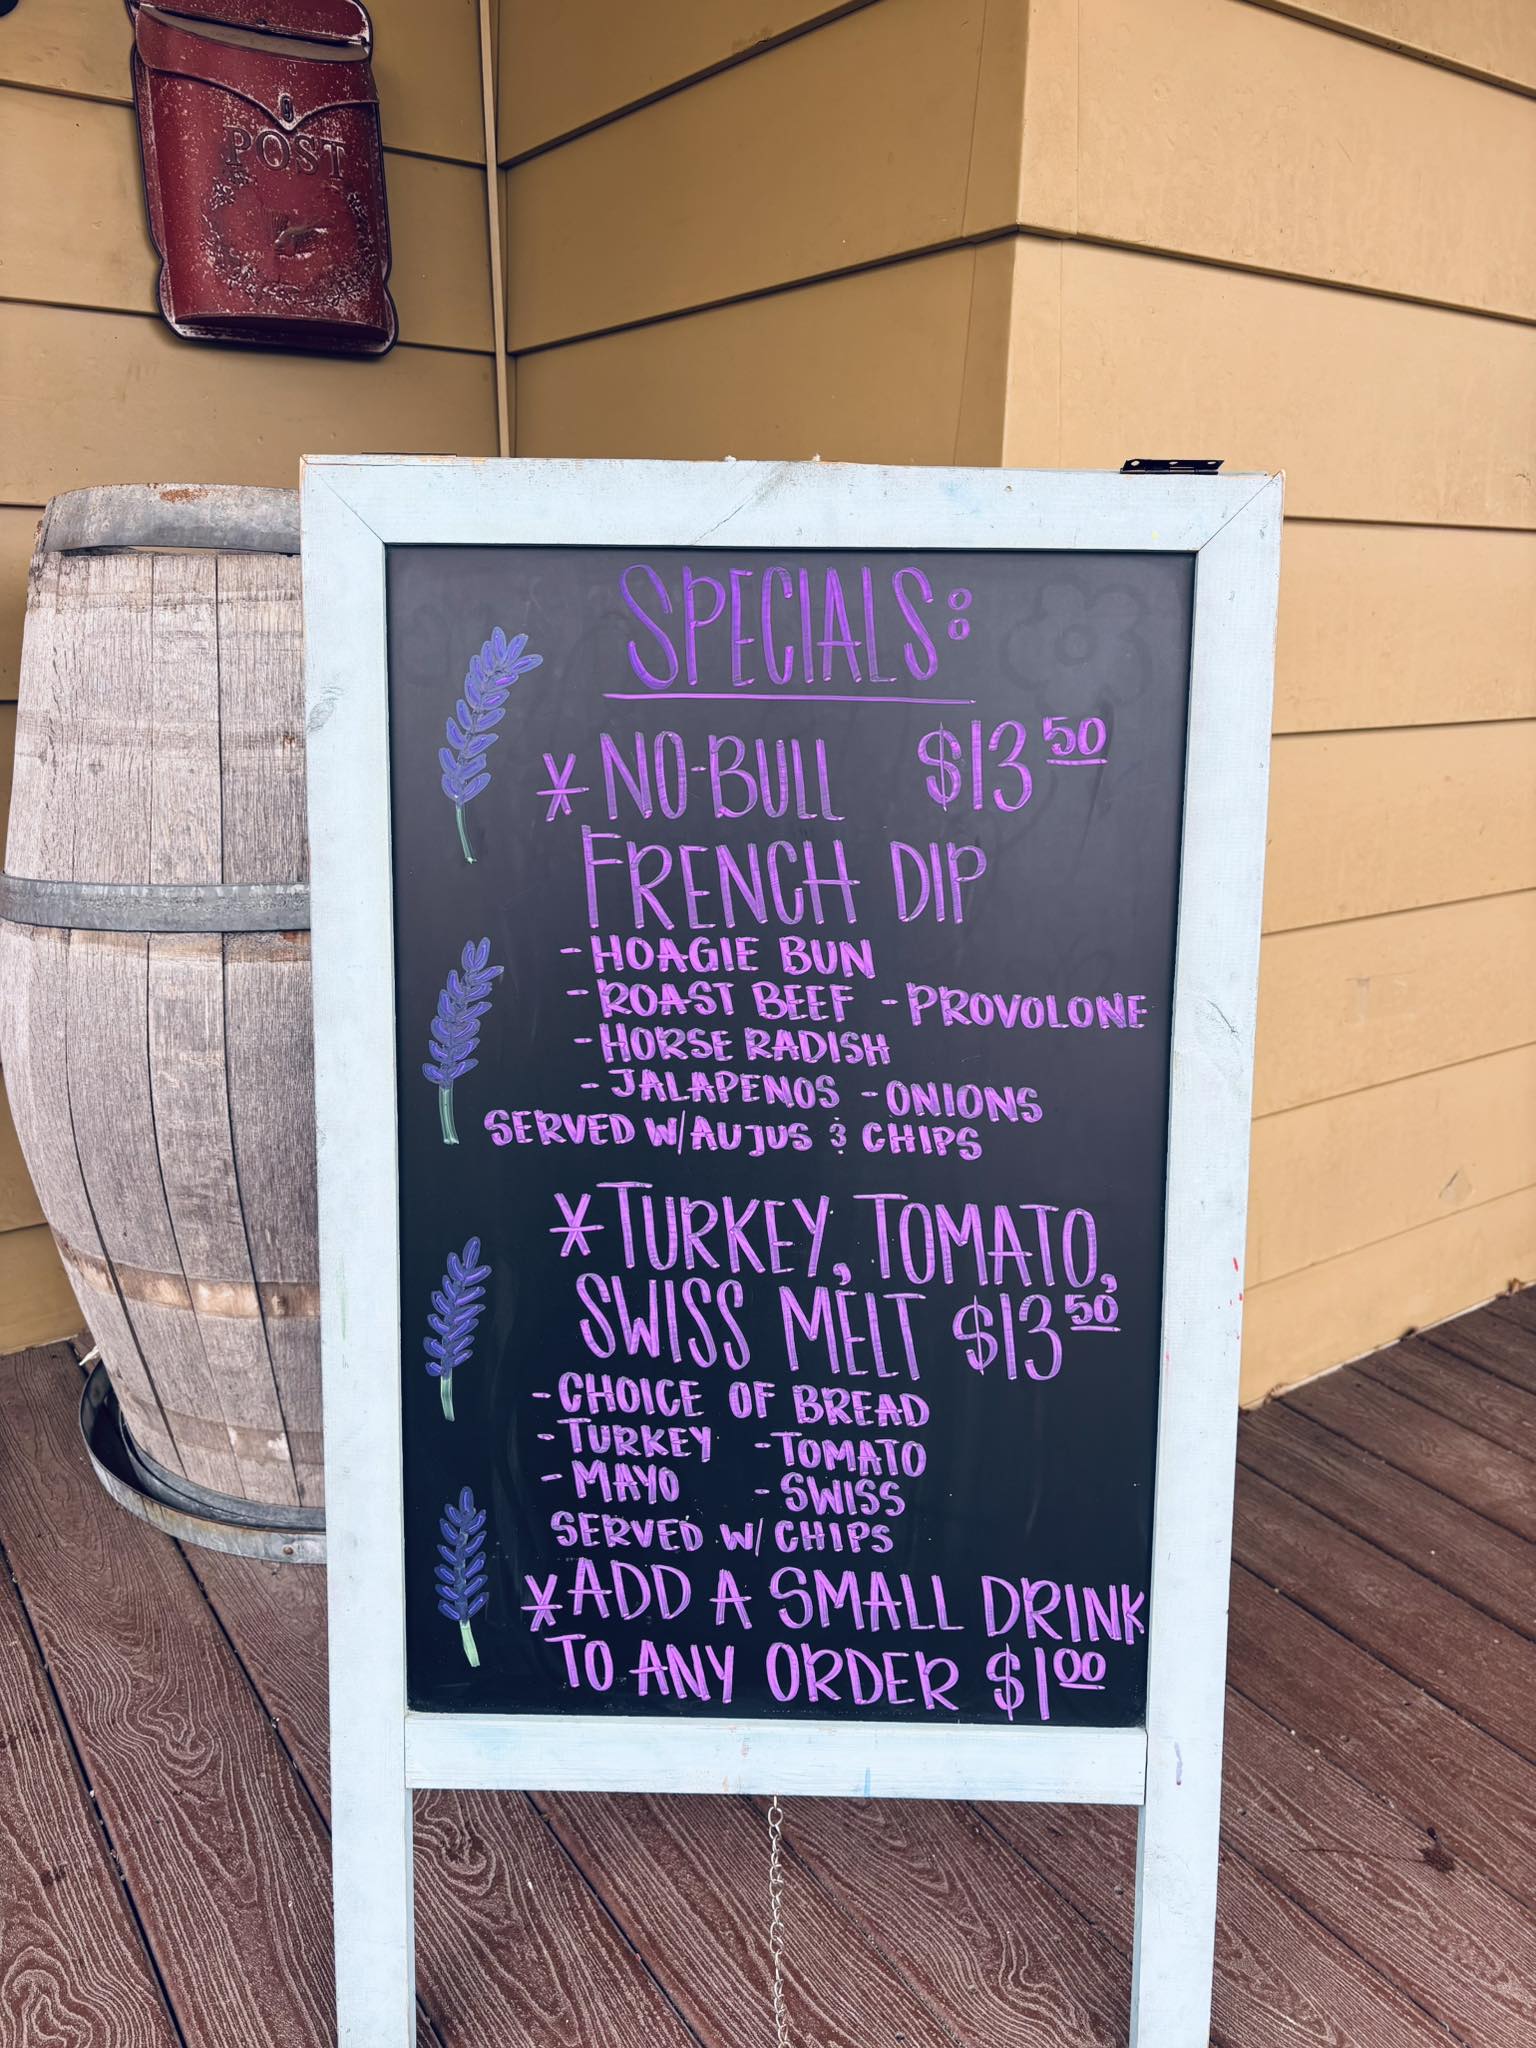 POST
SPECIALS:
* NO-BULL $13.50
FRENCH DIP
- HOAGIE BUN
- ROAST BEEF - PROVOLONE
- HORSE RADISH
- JALAPENOS - ONIONS
SERVED W/ AUJUS & CHIPS
* TURKEY, TOMATO,
SWISS MELT $13.50
- CHOICE OF BREAD
- TURKEY - TOMATO
- MAYO - SWISS
SERVED W/ CHIPS
* ADD A SMALL DRINK
TO ANY ORDER $1.00